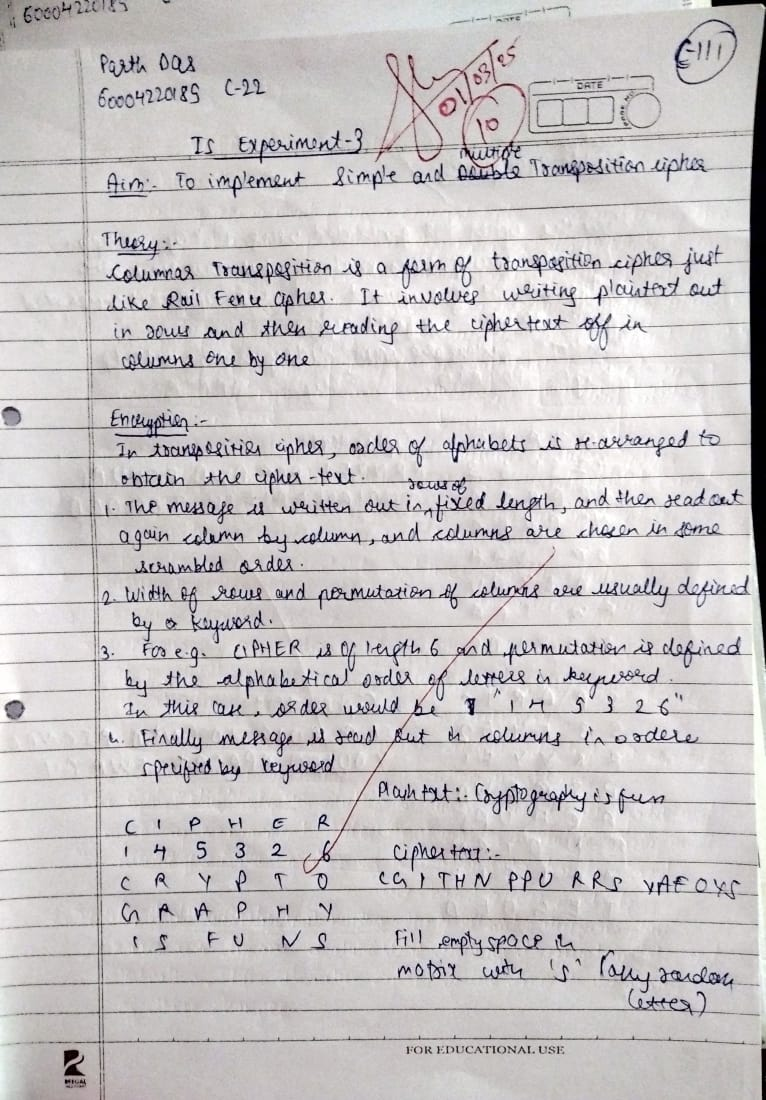 60004220189
DATE
C-111
Parth Das
60004220189 C-22
01/03/25
10
DATE
IS Experiment-3
multiple
Aim:- To implement Simple and Double Transposition cipher
Theory:-
Columnar Transposition is a form of transposition cipher just
like Rail Fence cipher. It involves writing plaintext out
in rows and then reading the ciphertext off in
columns one by one
Encryption:-
In transposition cipher, order of alphabets is re-arranged to
obtain the cipher-text.
rows of
1. The message is written out in fixed length, and then read out
again column by column, and columns are chosen in some
scrambled order.
2. Width of rows and permutation of columns are usually defined
by a keyword.
3. For e.g. CIPHER is of length 6 and permutation is defined
by the alphabetical order of letters in keyword.
In this case, order would be "1 4 5 3 2 6"
4. Finally message is read out in columns in ordere
specified by keyword
Plain text:- Cryptography is fun
C I P H E R
1 4 5 3 2 6
Cipher text:-
C R Y P T O
CGI THN PPU RRS YAF OYS
G R A P H Y
I S F U N S
Fill empty space in
matrix with 's' (any random
letter)
FOR EDUCATIONAL USE